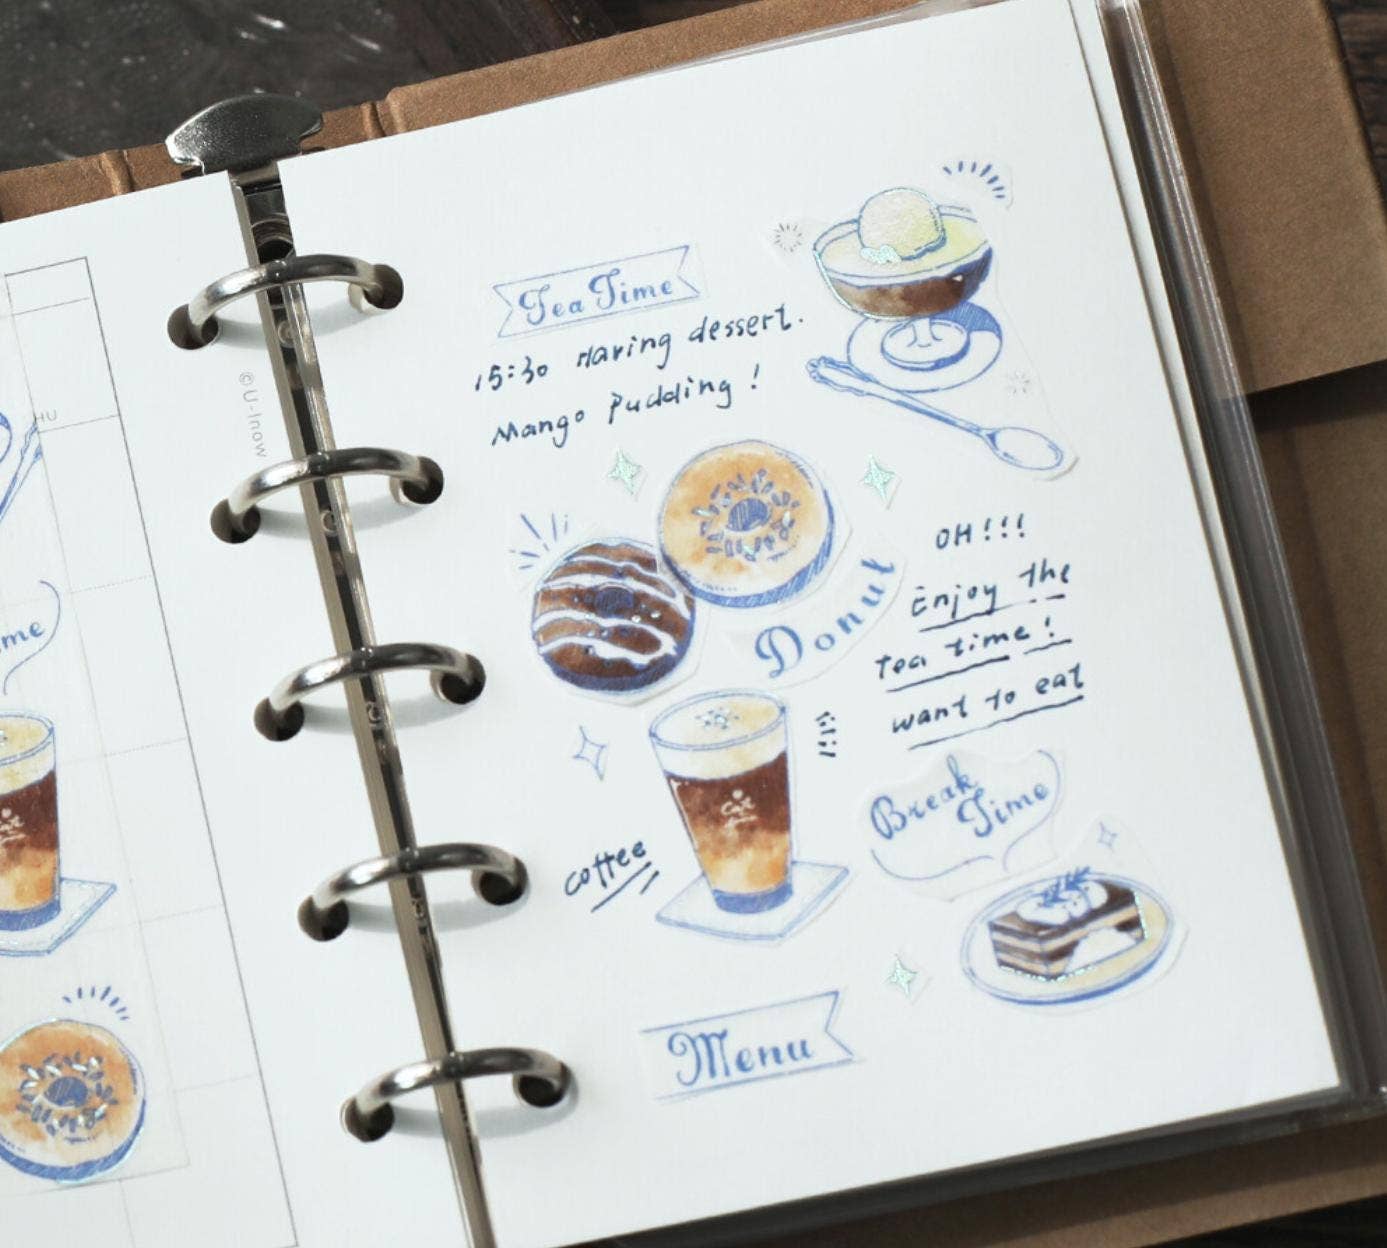 HU
me
Cafe
©U-Inow
Tea Time
15:30 Having dessert.
Mango pudding!
Donut
OH!!!
Enjoy the
Tea time!
want to eat
Cafe
coffee
Break
Time
Menu